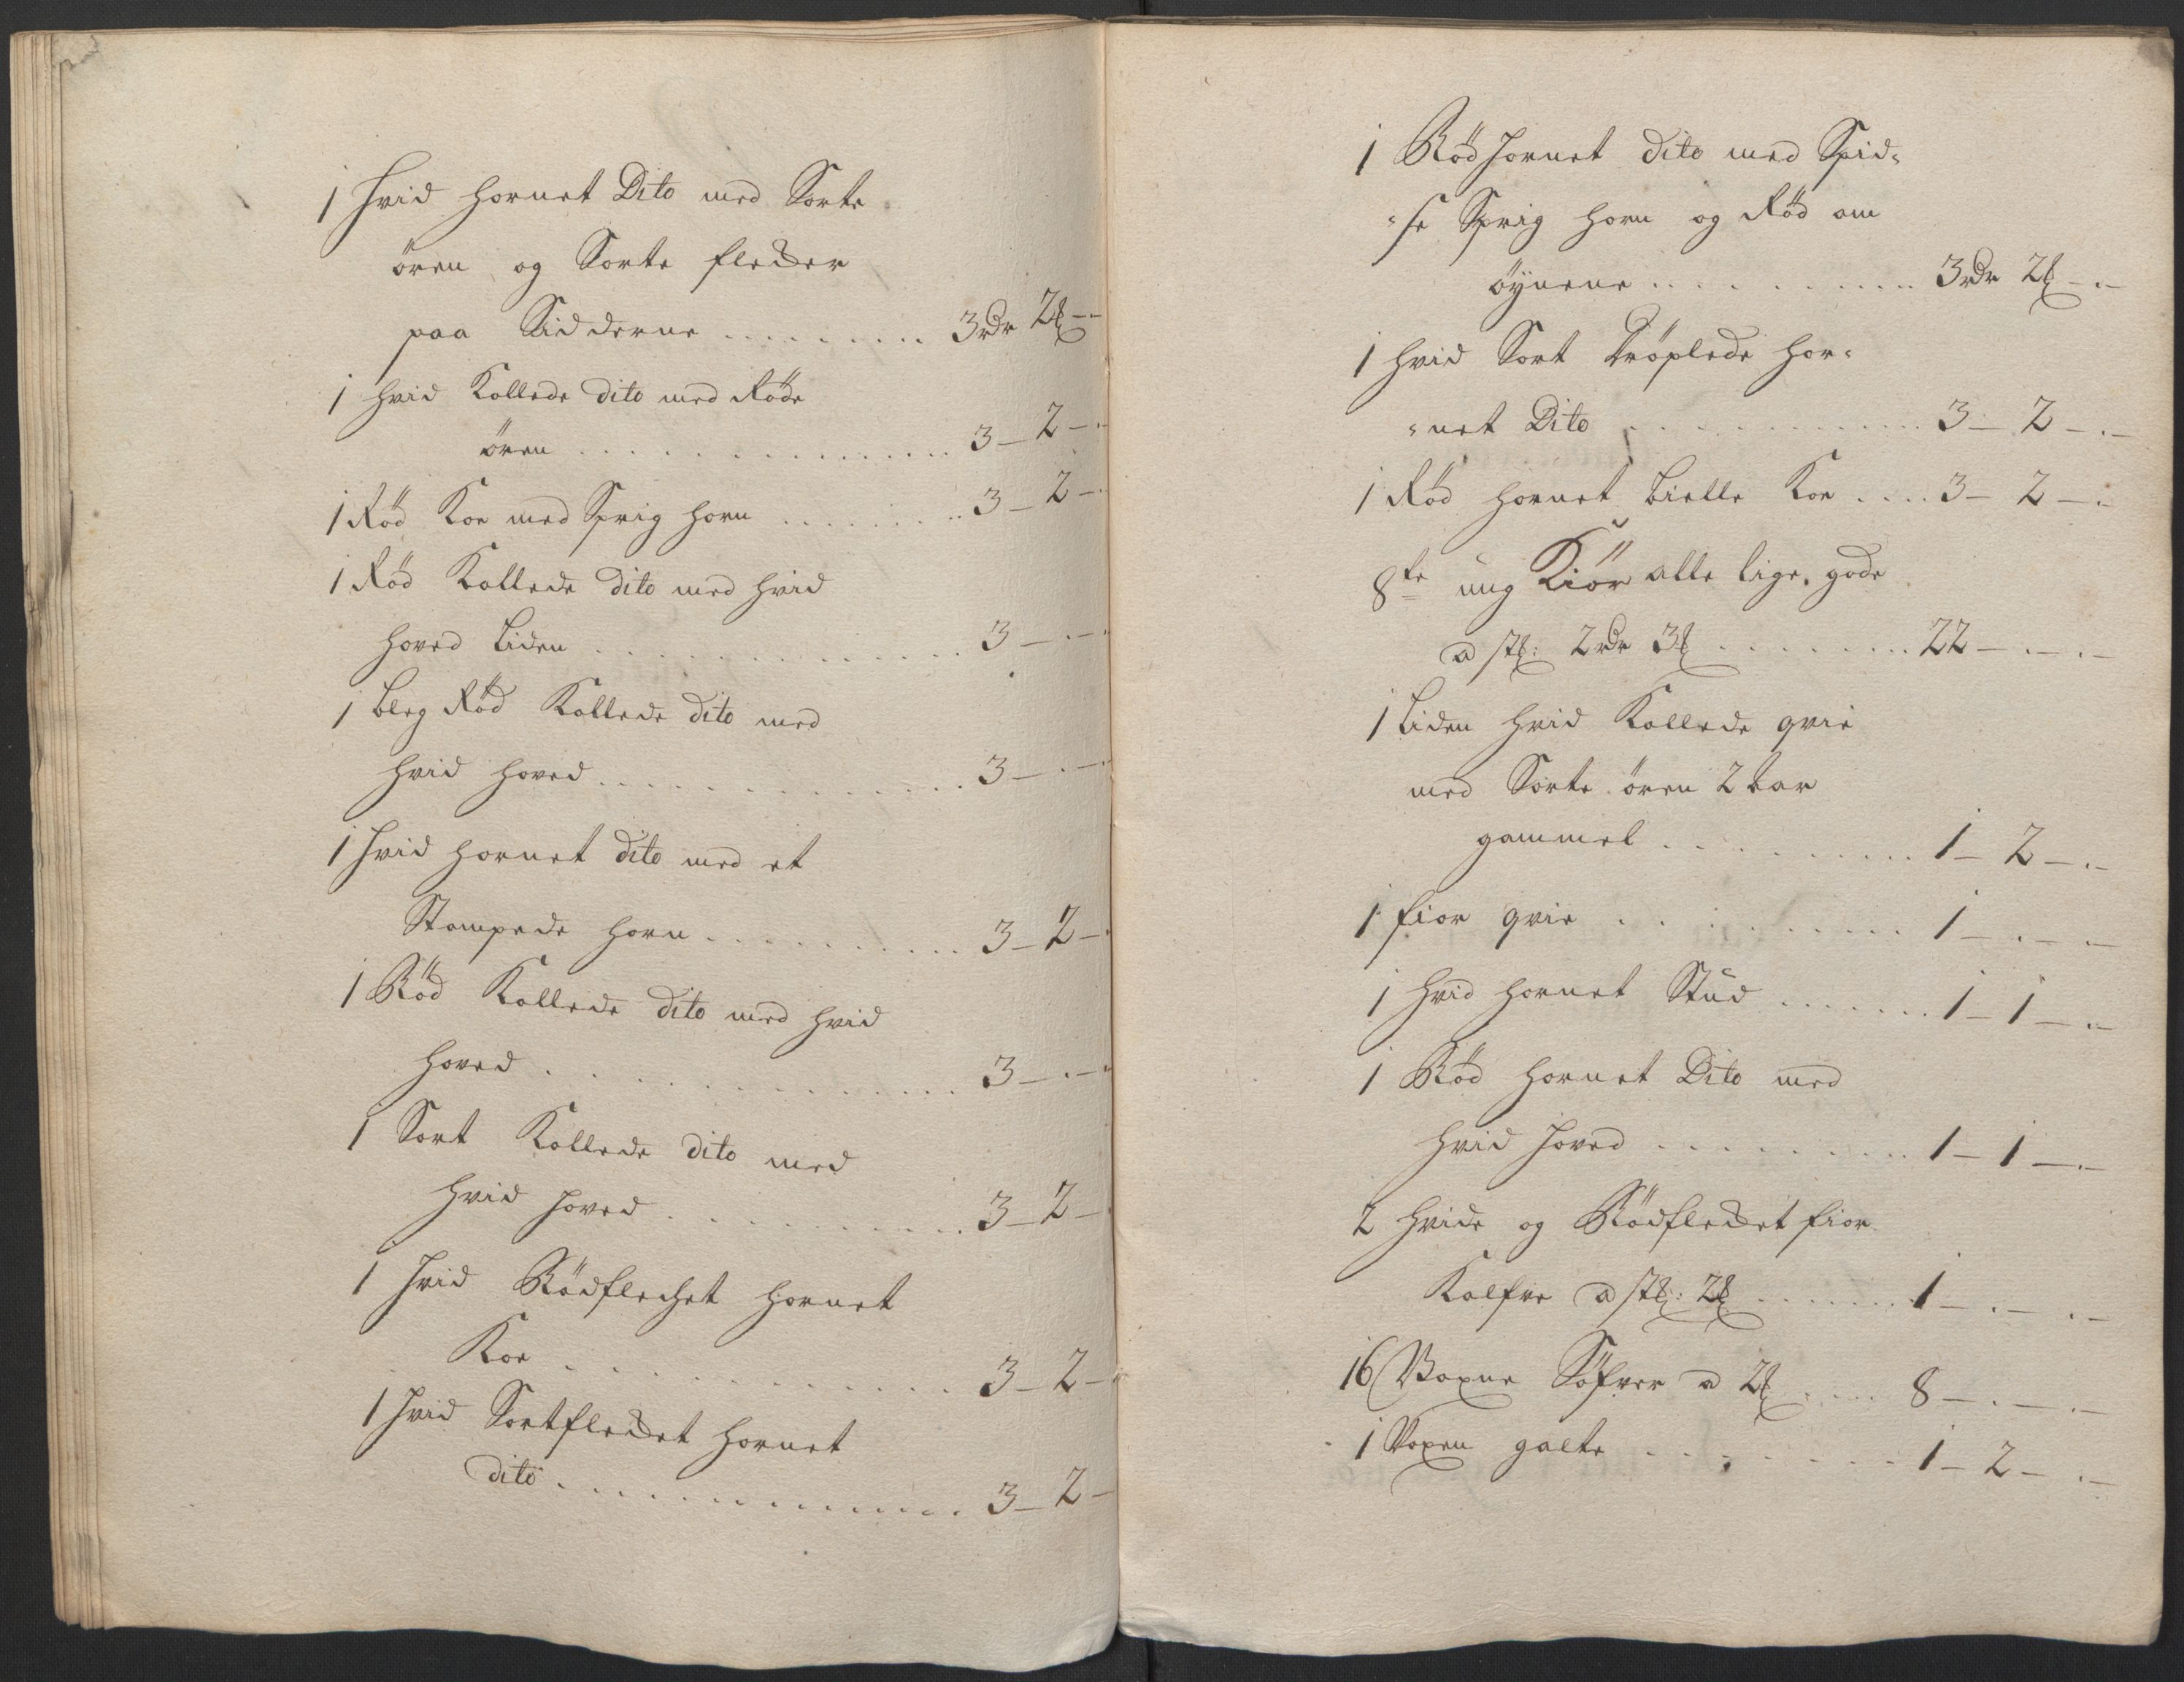 1 Hvid hornet Dito med Sorte
ören og Sorte flecker
paa Sidderne ........ 3rdr 2ß - -
1 hvid Kollede dito med Röde
ören ............... 3 - 2 - -
1 Röd Koe med Sprig horn ........ 3 - 2 - -
1 Röd Kollede dito med hvid
hoved Liden .............. 3 - . -
1 bleg Röd Kollede dito med
hvid hoved .............. 3 - . -
1 Hvid hornet dito med et
Stompede horn .......... 3 - 2 -
1 Röd Kollede dito med hvid
hoved ............... 3 - . -
1 Sort Kollede dito med
hvid Hoved ........... 3 - 2 -
1 Hvid Rödflechet hornet
Koe .............. 3 - 2 -
1 Hvid Sortflecket hornet
dito .............. 3 - 2 -
1 Röd Hornet dito med Spid=
=se Sprig horn og Röd om
öynene .......... 3rdr 2ß - . -
1 hvid Sort Dröplede hor=
=net Dito ............ 3 - 2 - . -
1 Röd hornet bielle Koe .... 3 - 2 - . -
8te ung Kiör alle lige gode
a stk: 2rdr 3ß ........ 22 - . - . -
1 Liden hvid Kollede qvie
med Sorte ören 2 aar
gammel .......... 1 - 2 - . -
1 fior qvie ......... 1 - . - . -
1 hvid hornet Stud ...... 1 - 1 - . -
1 Röd hornet Dito med
hvid Hoved ......... 1 - 1 - . -
2 hvide og Rödflecket fior
Kalfve a stk: 2ß ...... 1 - . - . -
16 Voxne Söfver a 2ß .... 8 - . - . -
1 Voxen galte ........ 1 - 2 - . -